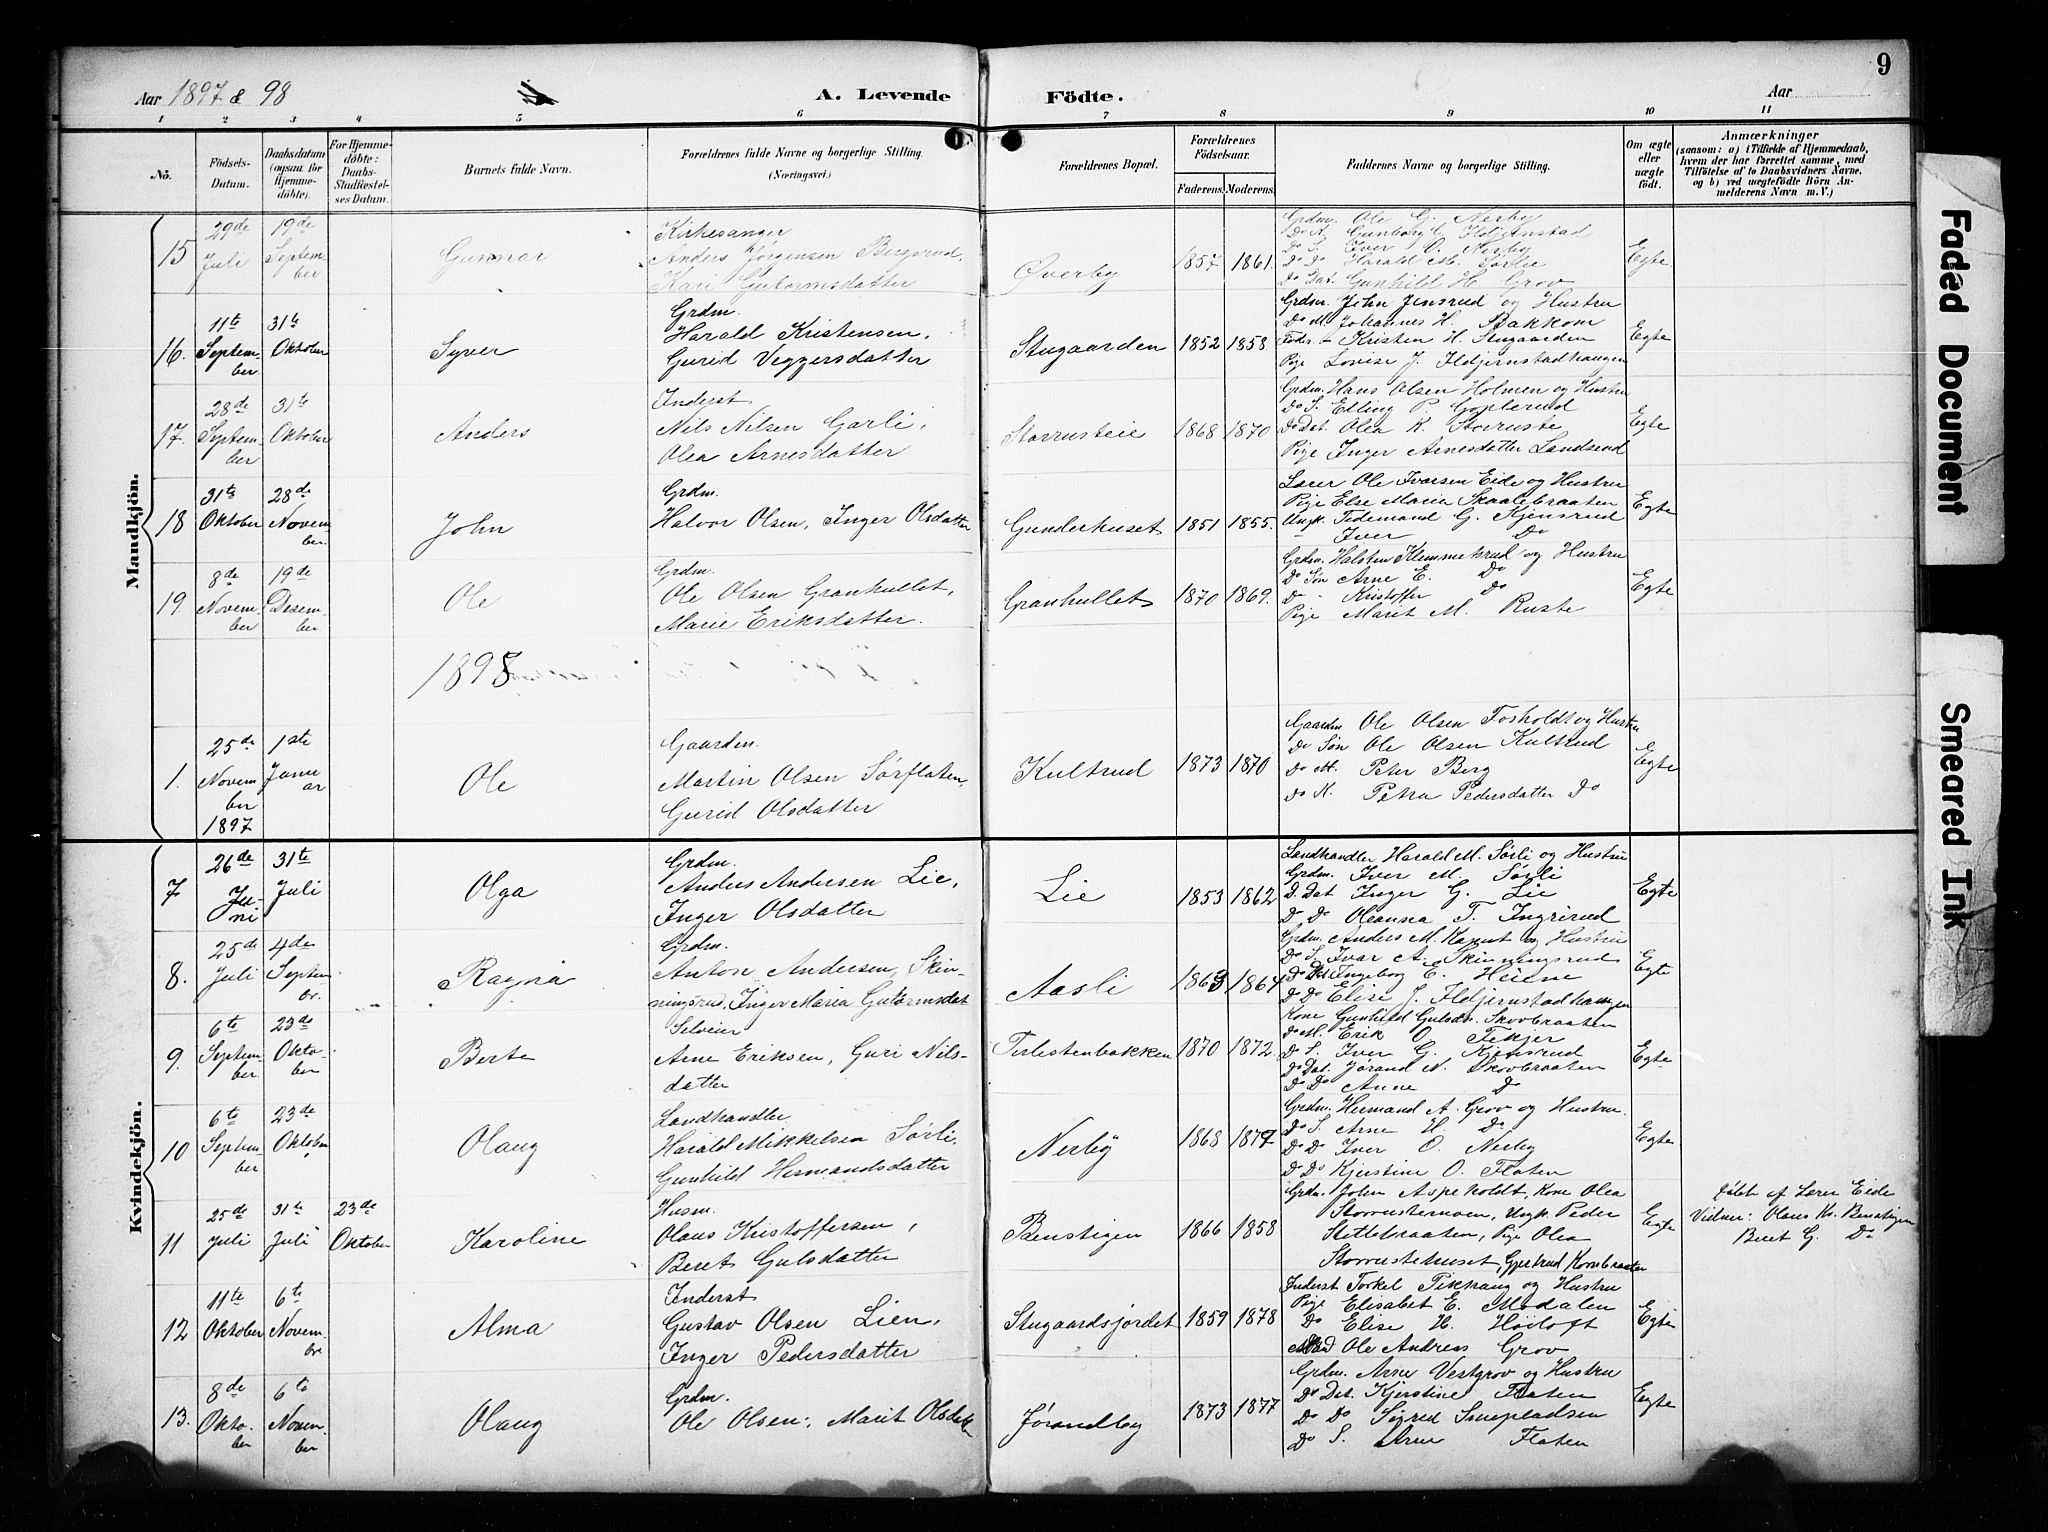 9
Aar 1897 & 98
A. Levende Födte.
Aar
1 2 3 4 5 6 7 8 9 10 11
No. Födsels-Datum. Daabsdatum (ogsaa for Hjemmedöbte). For Hjemmedöbte: Daabs-Stadfæstelses Datum. Barnets fulde Navn. Forældrenes fulde Navne og borgerlige Stilling. (Næringsvei.) Forældrenes Bopæl. Forældrenes Födselsaar. Faderens. Moderens. Faddernes Navne og borgerlige Stilling. Om ægte eller uægte födt. Anmærkninger (saasom: a) i Tilfælde af Hjemmedaab, hvem der har forrettet samme, med Tilföielse af to Daabsvidners Navne, og b) ved uægtefödte Börn Anmelderens Navn m. V.)
Mandkjön.
15 29de Juli 19de September Gunnar Kirkesanger Anders Jørgensen Bergsrud, Kari Guttormsdatter Øverby 1857 1861. Egte.
Grdm. Ole G. Nerby
Do K. Gunborg G. Hdjernstad
Do S. Iver O. Nerby
Do Do Harald M. Sørlie
Do Dat. Gunhild H. Grov
16. 11te September 31te Oktober Syver Grdm. Harald Kristensen, Gurid Veggersdatter Stugaarden 1852 1858. Egte
Grdm. John Jensrud og Hustru
Do M. Johannes H. Bakkom
Kristen H. Stugaarden
Pige Lovise J. Hdjernstadhaugen
17. 28de September 31te Oktober Anders Inderst Nils Nilsen Garli, Olea Arnesdatter Storrusteie 1868 1870 Egte
Grdm. Hans Olsen Holmen og Hustru
Do S. Elling P. Goplerud
Do Dat. Olea K. Storruste
Pige Inger Arnesdatter Landsend
18 31te Oktober 28de November. John Grdm. Halvor Olsen, Inger Olsdatter Gunderhuset 1851 1855. Egte
Lærer Ole Iversen Eide og Hustru
Pige Else Marie Skaalebraaten
Ungk. Tidemand G. Kjensrud
Iver Do
19. 8de November 19de Desember Ole Grdm. Ole Olsen Granhullet, Marie Eriksdatter. Granhullet 1870 1869. Egte
Grdm. Halsten Klemmetsrud og Hustru
Do Søn Arne E. Do
Do - Kristoffer Do
Pige Marit M. Ruste
1898
1. 25de November 1897 1ste Januar Ole Gaardm. Martin Olsen Sørflaten Gurid Olsdatter Kultrud 1873 1870 Egte
Gaardm Ole Olsen Fosholdt og Hustru
Do Søn Ole Olsen Kultrud
Do M. Peter Berg
Do K. Petra Pedersdatter Do
Kvindekjön.
7 26de Juni 31te Juli Olga Grdm. Anders Andersen Lie, Inger Olsdatter Lie 1853 1862 Egte
Landhandler Harald M. Sørli og Hustru
Grdm. Iver M. Sørli
D. Dat Inger G. Lie
D. Do Oleanna T. Ingrirud
8. 25de Juli 4de Septembr. Ragna Grdm. Anton Andersen Skinningsrud, Inger Maria Gutormsdat Aasli 1863 1864 Egte
Grdm. Anders M. og Hustru
Do S. Ivar A. Skinningsrud
Do Dat Ingeborg E. Heiene
D. Do Elise J. Hdjernstadhaugen
9. 6te September 23de Oktober Berte Selveier Arne Eriksen, Guri Nilsdatter Tislestenbakken 1870 1872. Egte.
Kone Gunhild Gulsdt. Skovbraaten
Do M. Erik O. Fekjer
Do S. Iver G. Kjensrud
Do Dat. Jørand N. Skovbraaten
Do Do Anne Do
10 6te September 23de Oktober Olaug Landhandler Harald Mikkelsen Sørli, Gunhild Hermandsdatter Nerby 1868 1877 Egte
Grdm. Hermand A. Grov og Hustru.
Do S. Arne H. Do
Do Do Iver O. Nerby
D. Do Kjerstine O. Flaten
11 25de Juli 31te Juli 23de Oktober Karoline Husm. Olaus Kristoffersen, Beret Gulsdatter Benstigen 1866 1858 Egte
Grdm. John Aspeholdt, Kone Olea
Storrustemoen, Ungk. Peder
Slettebraaten, Pige Olea
Storrustehuset, Gjertrud Kornbraaten
Døbt af Lærer Eide
Vidner: Olaus Kr. Benstigen
Beret G. Do
12 11te Oktober 6te Novembr Alma Inderst Gustav Olsen Lien, Inger Pedersdatter Stugaardsjordet 1859 1878 Egte
Inderst Torkel Pikhaug og Hustru
Pige Elisabet E. Modalen
Do Elise H. Høiloft
Ole Andreas Grov
13. 8de Oktober 6te November Olaug Grdm. Ole Olsen, Marit Olsdatter Jørandby 1873 1877 Egte
Grdm. Arne Vestgrov og Hustru
Do Dat. Kjerstine Flaten
Do Do Sigrid Snepladsen
Do S. Arne Flaten
Faded Document
Smeared Ink